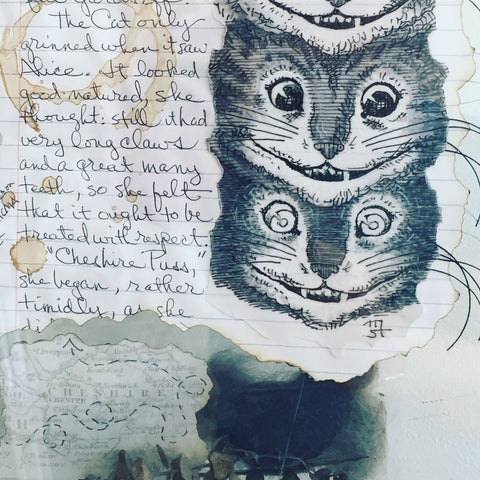 The Cat only
grinned when it saw
Alice. It looked
good-natured, she
thought: still it had
very long claws
and a great many
teeth, so she felt
that it ought to be
treated with respect.
"Cheshire Puss,"
she began, rather
timidly, as she
Liverpool
CHESHIRE
CHESTER